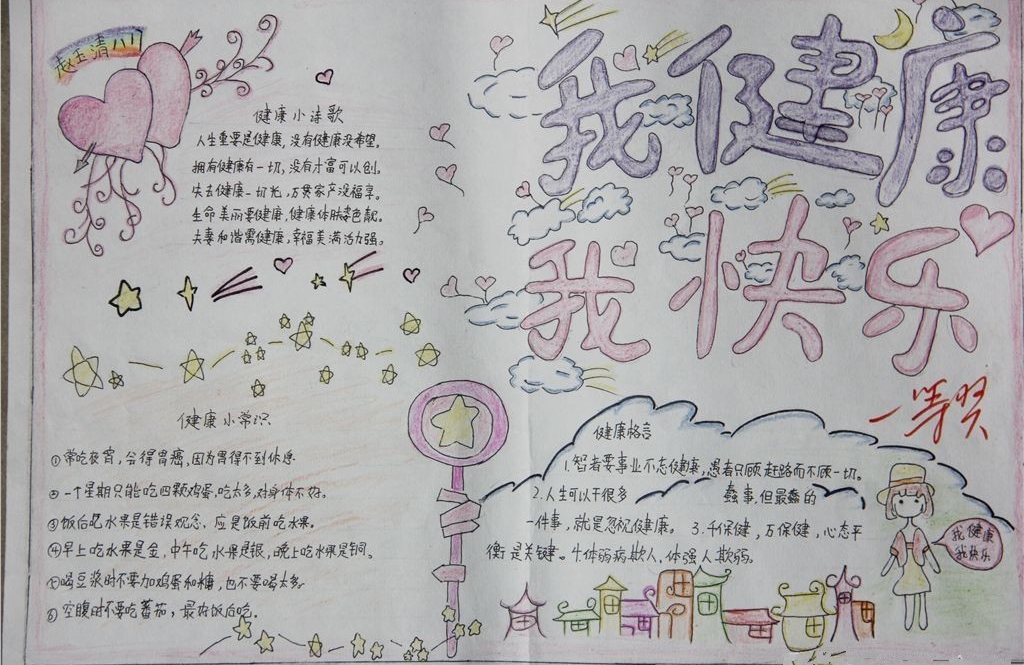 赵玉清八
健康小诗歌
人生重要是健康，没有健康没希望。
拥有健康有一切，没有才富可以创。
失去健康一切光，万贯家产没福享。
生命美丽要健康，健康体肤柒色靓。
夫妻和谐需健康，幸福美满活力强。
健康小常识
①常吃夜宵，会得胃癌，因为胃得不到休息
②一个星期只能吃四颗鸡蛋，吃太多，对身体不好。
③饭后吃水果是错误观念，应是饭前吃水果。
④早上吃水果是金，中午吃水果是银，晚上吃水果是铜。
⑤喝豆浆时不要加鸡蛋和糖，也不要喝太多
⑥空腹时不要吃蕃茄，最好饭后吃。
我健康
我快乐
一等奖
健康格言
1.智者要事业不忘健康，愚者只顾赶路而不顾一切。
2.人生可以干很多蠢事，但最蠢的
一件事，就是忽视健康。 3.千保健，万保健，心态平
衡是关键。4.体弱病欺人，体强人欺弱。
我健康
我快乐